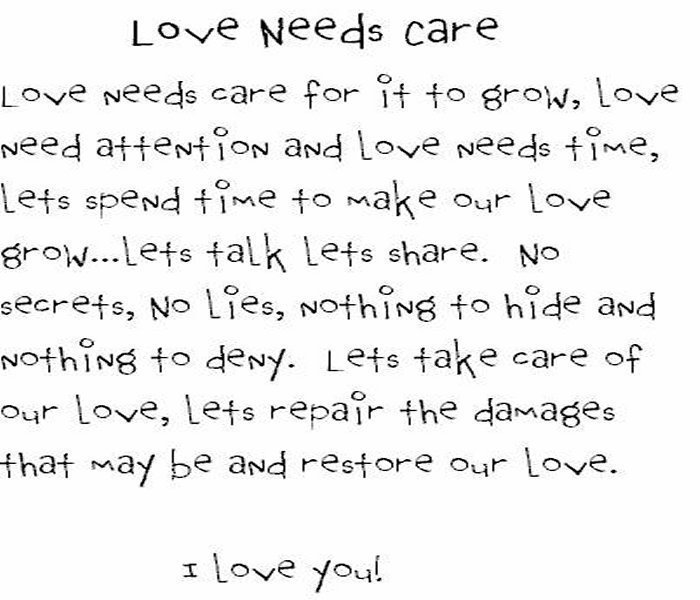 Love Needs Care
Love needs care for it to grow, love
need attention and love needs time,
Lets spend time to make our love
grow...Lets talk Lets share. No
secrets, No Lies, nothing to hide and
nothing to deny. Lets take care of
our love, Lets repair the damages
that may be and restore our love.
I love you!